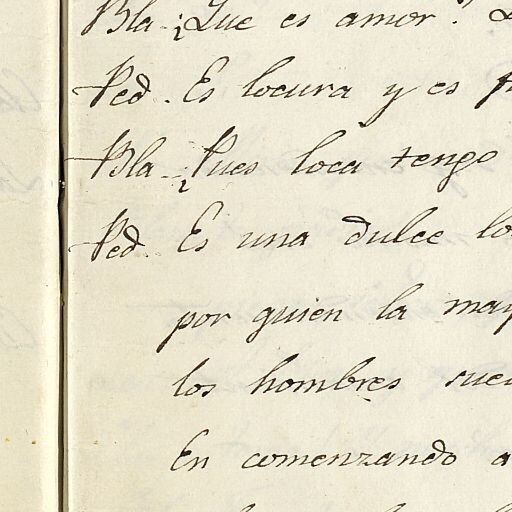 Bla. ¿Que es amor?
Ped. Es locura y es
Bla. ¿Pues loca tengo
Ped. Es una dulce
por quien la
los hombres
En comenzando